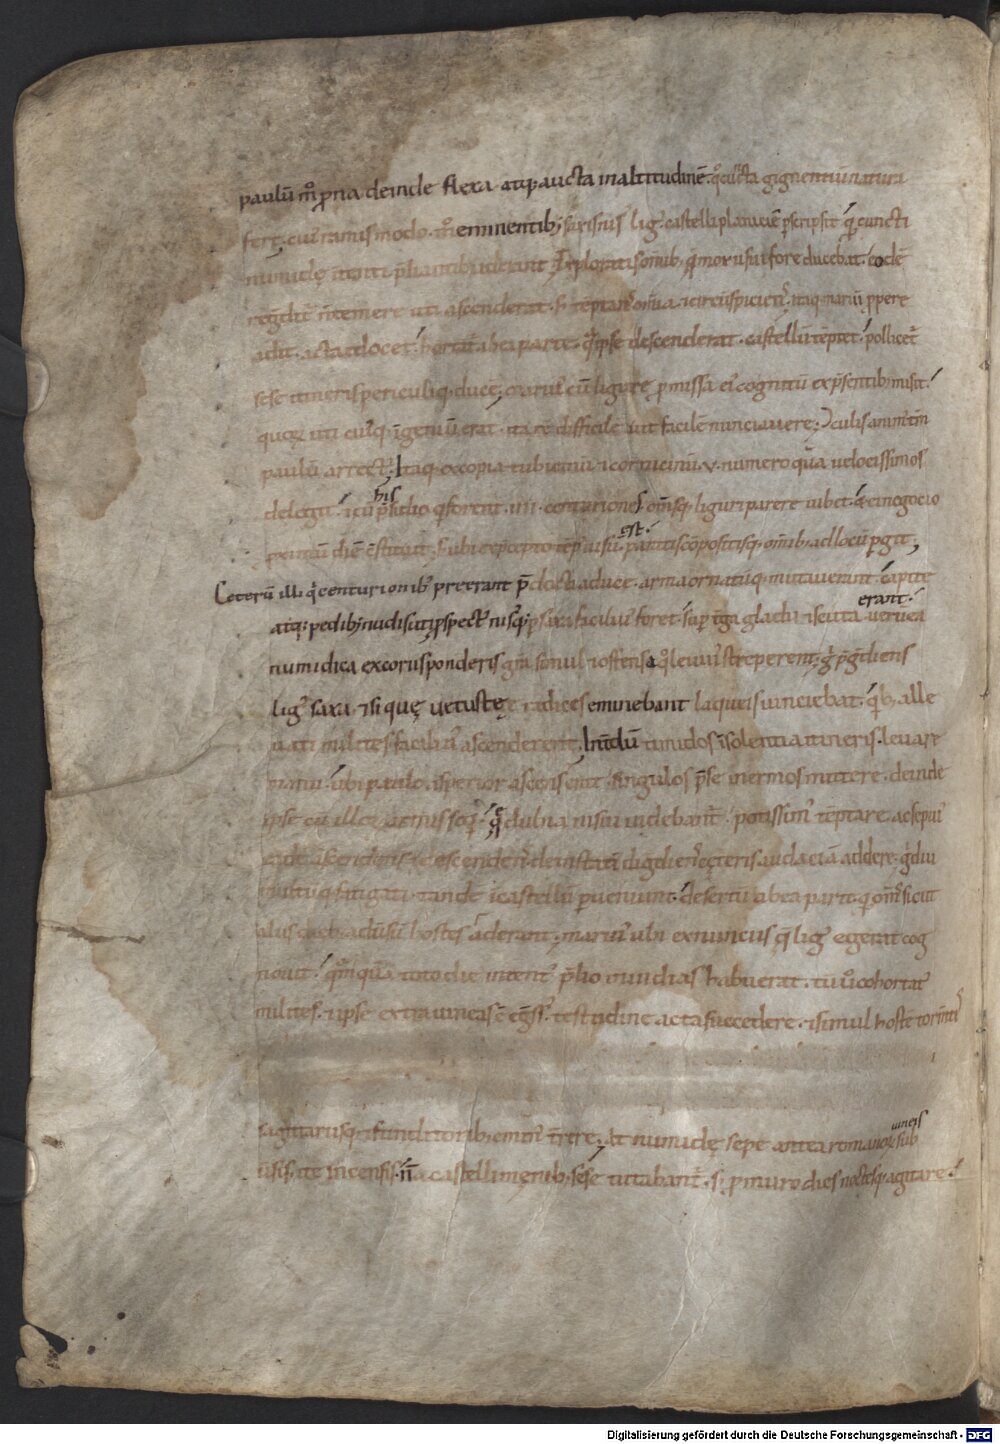 paulū m̊ prona deinde flexa atq; aucta in altitudinē. q̊ cuncta gignentiū natura
fert, cuius ramis modo. m̊ eminentib; saxis nisus ligꝰ. castelli planiciē pscripsit q̄ cuncti
numidę intenti p̄liantib; aderant. Exploratis omib; q̄ mox usui fore ducebat. eodē
regdit̄ n̄ temere uti ascenderat. s; teptans omia. & circūspiciens. Itaq; mariū ppere
adit. acta edocet. hortat̄ ab ea parte. q̄ ipse descenderat. castellū tēptet. pollicet̄
sese itineris periculiq; ducē. mariꝰ cū ligure pmissa eiꝰ cognitū ex p̄sentib; misit.
quoꝝ uti cuiusq; ingeniū erat. ita rē difficilē aut facilē nunciauere. Consulis animꝰ tm̄
paulū arrectꝰ. Itaq; ex copia tubicinū & cornicinū. v. numero quā uelocissimos
delegit. & cū his p̄sidio q̄ forent. IIII. centuriones. om̄sq; liguri parere iubet. & ei negocio
proximū diē cstituit. S; ubi ex p̄cepto tēpꝰ uisū est. paratis cōpositisq; omib; ad locū pgit,
Ceterū illi q̄ centurionib; preerant p̄docti a duce. arma ornatūq; mutauerant. capite
atq; pedib; nudis uti pspectꝰ nisusq; p saxa facilius foret. sup tga gladii & scuta uerū ea erant.
numidica ex coriis ponderis grā. simul & offensa q̊ leuius streperent. g̊ p̄grediens
ligꝰ saxa & si quę uetustę radices eminebant laqueis uinciebat. q̄b; alle
uati milites facilius ascenderent. Int̄dū timidos insolentia itineris. leuare
manu. ubi paulo asperior ascensus erat. singulos p̄se inermos mittere. deinde
ipse cū illoꝝ armis seq. q̄ dubia nisui uidebant̄. potissimꝰ tēptare. ac sepius
eadē ascendens descendensq;. dein statī digrediens. cęteris audaciā addere. g̊ diu
multūq; fatigati. tandē in castellū pueniunt. desertū ab ea parte. q̄ om̄s sicut
aliis dieb; aduersū hostes aderant. mariꝰ ubi ex nunciis q̄ ligꝰ egerat cog
nouit. quāquā toto die intentꝰ p̄lio numidas habuerat. tū ũo cohortatꝰ
milites. & ipse extra uineas egressꝰ. testudine acta succedere. & simul hostē tormtis
sagittariisq; & funditorib; emin᷑ trrere. At numidę sepe antea romanoꝝ uineis sub
uersis. itē incensis. n̄ castelli męnib; sese tutabant̄. s; p muro dies noctesq; agitare.
Digitalisierung gefördert durch die Deutsche Forschungsgemeinschaft - DFG